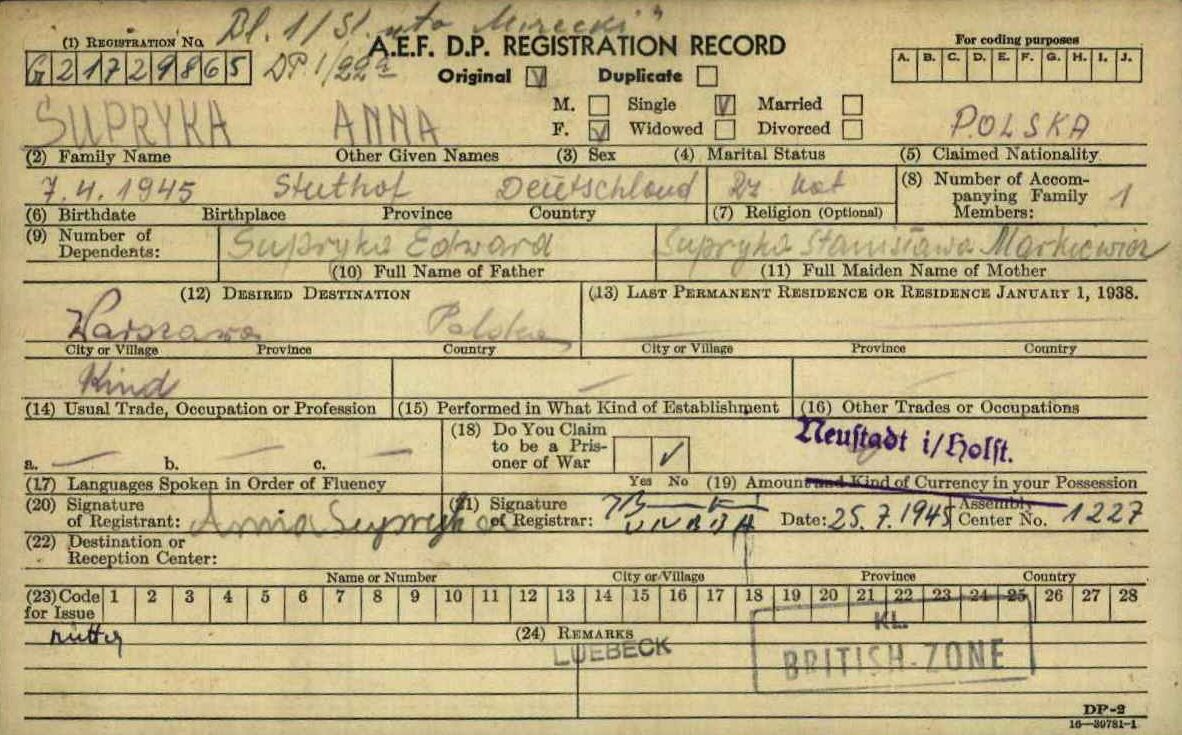 Bl. 1/St. "uta Mirecki"
(1) REGISTRATION No.
G21729865
DP 1/22a
A.E.F. D.P. REGISTRATION RECORD
Original Duplicate
For coding purposes
A. B. C. D. E. F. G. H. I. J.
M. Single Married
F. Widowed Divorced
SUPRYKA ANNA POLSKA
(2) Family Name Other Given Names (3) Sex (4) Marital Status (5) Claimed Nationality
7.4.1945 Stuthof Deutschland kat
(8) Number of Accompanying Family Members: 1
(6) Birthdate Birthplace Province Country (7) Religion (Optional)
(9) Number of Dependents:
Supryka Edward Supryka Stanisława Markiewicz
(10) Full Name of Father (11) Full Maiden Name of Mother
(12) DESIRED DESTINATION (13) LAST PERMANENT RESIDENCE OR RESIDENCE JANUARY 1, 1938.
Warszawa Polska
City or Village Province Country City or Village Province Country
Kind
(14) Usual Trade, Occupation or Profession (15) Performed in What Kind of Establishment (16) Other Trades or Occupations
(18) Do You Claim to be a Prisoner of War
Neustadt i/Holst.
a. b. c.
Yes No
(17) Languages Spoken in Order of Fluency (19) Amount and Kind of Currency in your Possession
(20) Signature of Registrant: Anna Supryka (21) Signature of Registrar: Date: 25.7.1945 Assembly Center No. 1227
(22) Destination or Reception Center:
Name or Number City or Village Province Country
(23) Code for Issue 1 2 3 4 5 6 7 8 9 10 11 12 13 14 15 16 17 18 19 20 21 22 23 24 25 26 27 28
(24) REMARKS
LUEBECK
KL.
BRITISH-ZONE
DP-2
16—39781-1